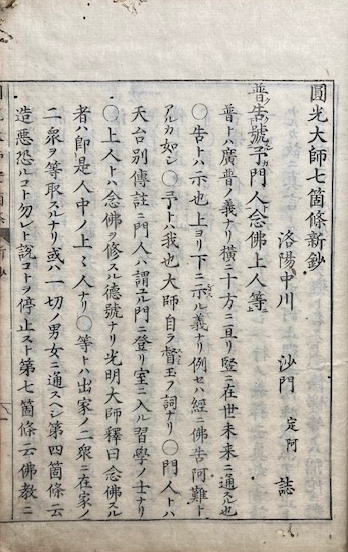 圓光大師七箇條新鈔
洛陽中川 沙門 定阿 誌
普告號予門人念佛上人等
普トハ廣普ノ義ナリ横ニ十方ニ亘リ竪ニ在世未来ニ通スル也
〇告トハ示也上ヨリ下ニ示ル義ナリ例セハ經ニ佛告阿難ト
アルカ如シ〇予トハ我也大師自ラ督玉フ詞ナリ〇門人トハ
天台別傳註ニ門人ハ謂ユル門ニ登リ室ニ入ル習學ノ士ナリ
〇上人トハ念佛ヲ修スル德號ナリ光明大師釋曰念佛スル
者ハ即是人中ノ上上人ナリ〇等トハ出家ノ二衆ニ在家ノ
二衆ヲ等取スルナリ或ハ一切ノ男女ニ通スヘシ第四箇條云
造悪恐ルコト勿レト説コトヲ停止スト第七箇條云佛教ニ